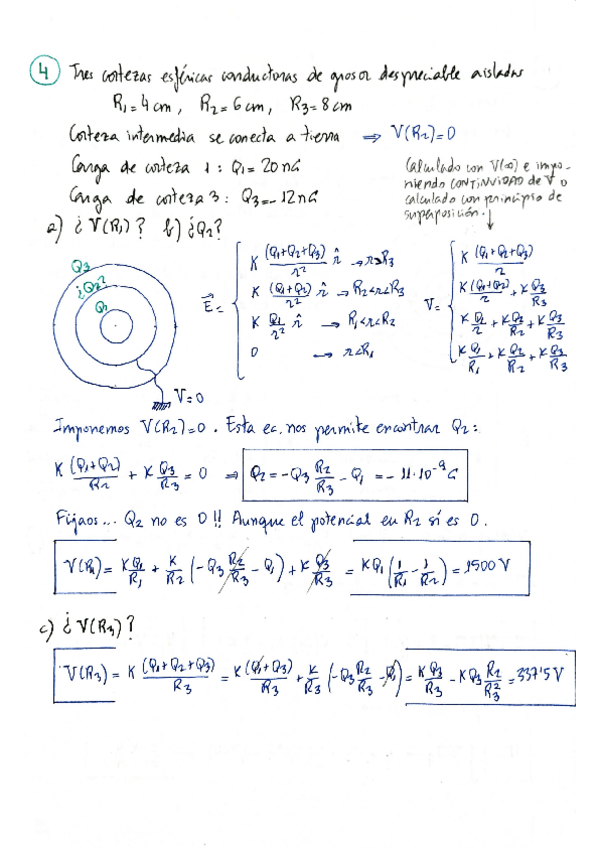 4 Tres cortezas esféricas conductoras de grosor despreciable aisladas
R₁=4cm, R₂=6cm, R₃=8cm
Corteza intermedia se conecta a tierra ⇒ V(R₂)=0
Carga de corteza 1: Q₁=20nC
Carga de corteza 3: Q₃=-12nC
Calculado con V(∞) e impo-
niendo CONTINUIDAD de V o
calculado con principio de
superposición.
a) ¿V(R₁)? b) ¿Q₂?
Q₃
¿Q₂?
Q₁
V=0
E⃗=
K (Q₁+Q₂+Q₃)/r² r̂ → r>R₃
K (Q₁+Q₂)/r² r̂ → R₂<r<R₃
K Q₁/r² r̂ → R₁<r<R₂
0 → r<R₁
V=
K (Q₁+Q₂+Q₃)/r
K (Q₁+Q₂)/r + K Q₃/R₃
K Q₁/r + K Q₂/R₂ + K Q₃/R₃
K Q₁/R₁ + K Q₂/R₂ + K Q₃/R₃
Imponemos V(R₂)=0. Esta ec. nos permite encontrar Q₂:
K (Q₁+Q₂)/R₂ + K Q₃/R₃ = 0 ⇒ Q₂ = -Q₃ R₂/R₃ - Q₁ = -11·10⁻⁹C
Fijaos... Q₂ no es 0!! Aunque el potencial en R₂ sí es 0.
V(R₁) = K Q₁/R₁ + K/R₂ (-Q₃ R₂/R₃ - Q₁) + K Q₃/R₃ = K Q₁ (1/R₁ - 1/R₂) = 1500 V
c) ¿V(R₃)?
V(R₃) = K (Q₁+Q₂+Q₃)/R₃ = K (Q₁+Q₃)/R₃ + K/R₃ (-Q₃ R₂/R₃ - Q₁) = K Q₃/R₃ - K Q₃ R₂/R₃² = 337'5 V